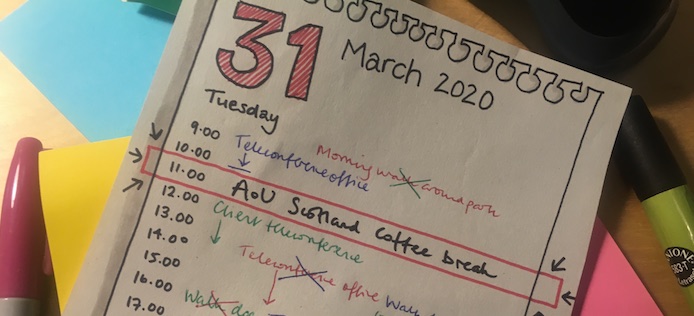 31 March 2020
Tuesday
9.00
Morning walk around park
10.00 Teleconference office
11.00 AoU Scotland Coffee break
12.00
13.00 Client teleconference
14.00
15.00 Teleconference office Walk
16.00
17.00 Walk